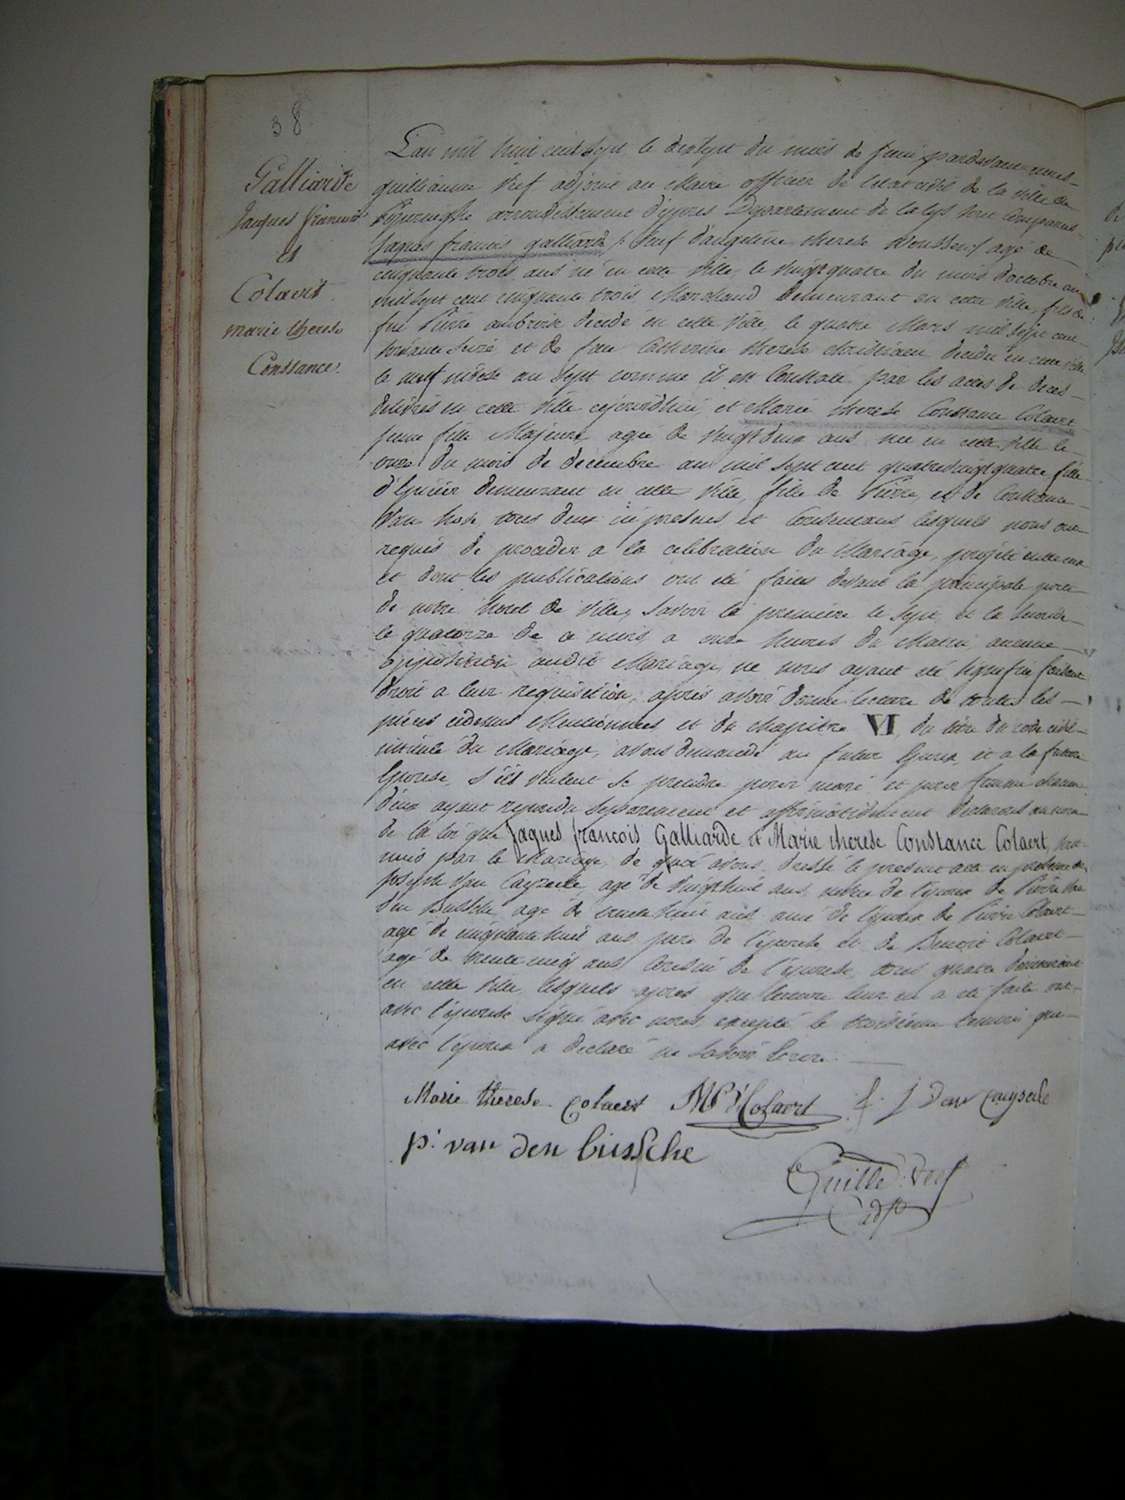 38
Galliarde
Jaques francois
et
Colaert
marie therese
Constance.
L'an mil huit cent sept le dixsept du mois de juin pardevant nous
guilliaume Vref adjoint au Maire officier de l'état civil de la ville de
Poperinghe arrondissement d'ypres Departement de la lys sont comparus
Jaques francois galliarde veuf d'angeline therese agé de
cinquante trois ans né en cette ville, le vingt quatre du mois d'octobre an
mil sept cent cinquante trois Marchand demeurant en cette ville, fils de
feu Pierre ambroise decedé en cette ville, le quatre Mars mil sept cent
soixante seize et de feue Catherine therese decedée en cette ville
le neuf nivose an sept comme il est Constaté par les actes de deces
delivrés en cette ville cejourdhui, et Marie therese Constance Colaert
jeune fille Majeure agée de vingt deux ans née en cette ville le
onze du mois de decembre an mil sept cent quatrevingt quatre
demeurant en cette ville, fille de Pierre, et de Constance
tous deux ici presens et Consentans lesquels nous ont
requis de proceder a la celebration du Mariage, projetté entre eux
et dont les publications ont été faites devant la principale porte
de notre hotel de ville, savoir la premiere le sept, et la seconde
le quatorze de ce mois, a onze heures du Matin aucune
opposition audit Mariage, ne nous ayant été signifiée faisant
droit a leur requisition, après avoir donné lecture de toutes les
pièces cidessus Mentionnées et du chapitre VI du titre du code civil
intitulé du Mariage, avons demandé au futur Epoux et a la future
Epouse, s'ils veulent se prendre pour mari et pour femme chacun
d'eux ayant repondu separement et affirmativement declarons au nom
de la loi que Jaques francois Galliarde et Marie therese Constance Colaert, sont
unis par le Mariage, de quoi avons dressé le present acte en presence de
Joseph Van Cayseele agé de vingt huit ans de l'epoux de Pierre Van
den Bussche agé de trente huit ans ami de l'epoux de Pierre Colaert
agé de cinquante huit ans pere de l'epouse et de Benoit Colaert
agé de trente neuf ans Cousin de l'epouse, tous quatre demeurant
en cette ville lesquels apres que lecture leur en a été faite ont
avec l'epouse signé avec nous, excepté le troisieme temoin qui
avec l'epoux a declaré ne savoir Ecrire.
Marie therese Colaert Colaert f. J Van Cayseele
p: van den bussche
Guille: Vref
adjt